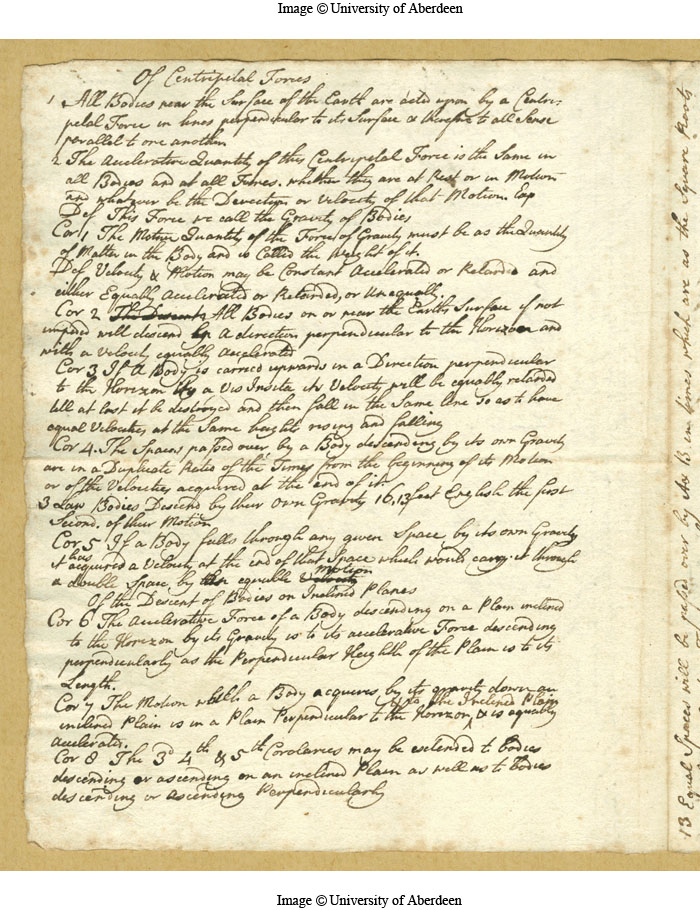 Image © University of Aberdeen
Of Centripetal Forces
1 All Bodies near the Surface of the Earth are acted upon by a Centri-
petal Force in lines perpendicular to its Surface & therefore to all Sense
parallel to one another
2 The Accelerative Quantity of this Centripetal Force is the Same in
all Bodies and at all Times. whether they are at Rest or in Motion
and whatever be the Direction or Velocity of that Motion Exp
Def This Force we call the Gravity of Bodies
Cor 1 The Motive Quantity of the Force of Gravity must be as the Quantity
of Matter in the Body and is Called the Weight of it.
Def Velocity & Motion may be Constant Accelerated or Retarded and
either Equally Accelerated or Retarded, or Unequally.
Cor 2 The Descent All Bodies on or near the Earths Surface if not
impeded will descend in a direction perpendicular to the Horizon and
with a Velocity equally accelerated
Cor 3 If a Body is carried upwards in a Direction perpendicular
to the Horizon by a Vis Insita its Velocity will be equally retarded
till at last it be destroyed and then fall in the Same line so as to have
equal Velocities at the Same heights rising and falling
Cor 4. The Spaces passed over by a Body descending by its own Gravity
are in a Duplicate Ratio of the Times from the beginning of its Motion
or of the Velocities acquired at the end of it.
3 Law Bodies Descend by their own Gravity 16,13 feet English the first
Second. of their Motion
Cor 5 If a Body falls through any given Space by its own Gravity
it has acquired a Velocity at the end of that Space which would carry it through
a double Space by an equable Velocity Motion
Of the Descent of Bodies on Inclined Planes
Cor 6 The Accelerative Force of a Body descending on a Plain inclined
to the Horizon by its Gravity is to its accelerative Force descending
perpendicularly as the Perpendicular Heighth of the Plain is to its
Length.
Cor 7 The Motion which a Body acquires by its gravity down an
inclined Plain is in a Plain Perpendicular to the Horizon & to the Inclined Plain & is equably
accelerated.
Cor 8 The 3d 4th & 5th Corolaries may be extended to bodies
descending or ascending on an inclined Plain as well as to bodies
descending or ascending Perpendicularly
13 Equal Spaces will be passed over by the B in times which are as the Square Roots
Image © University of Aberdeen